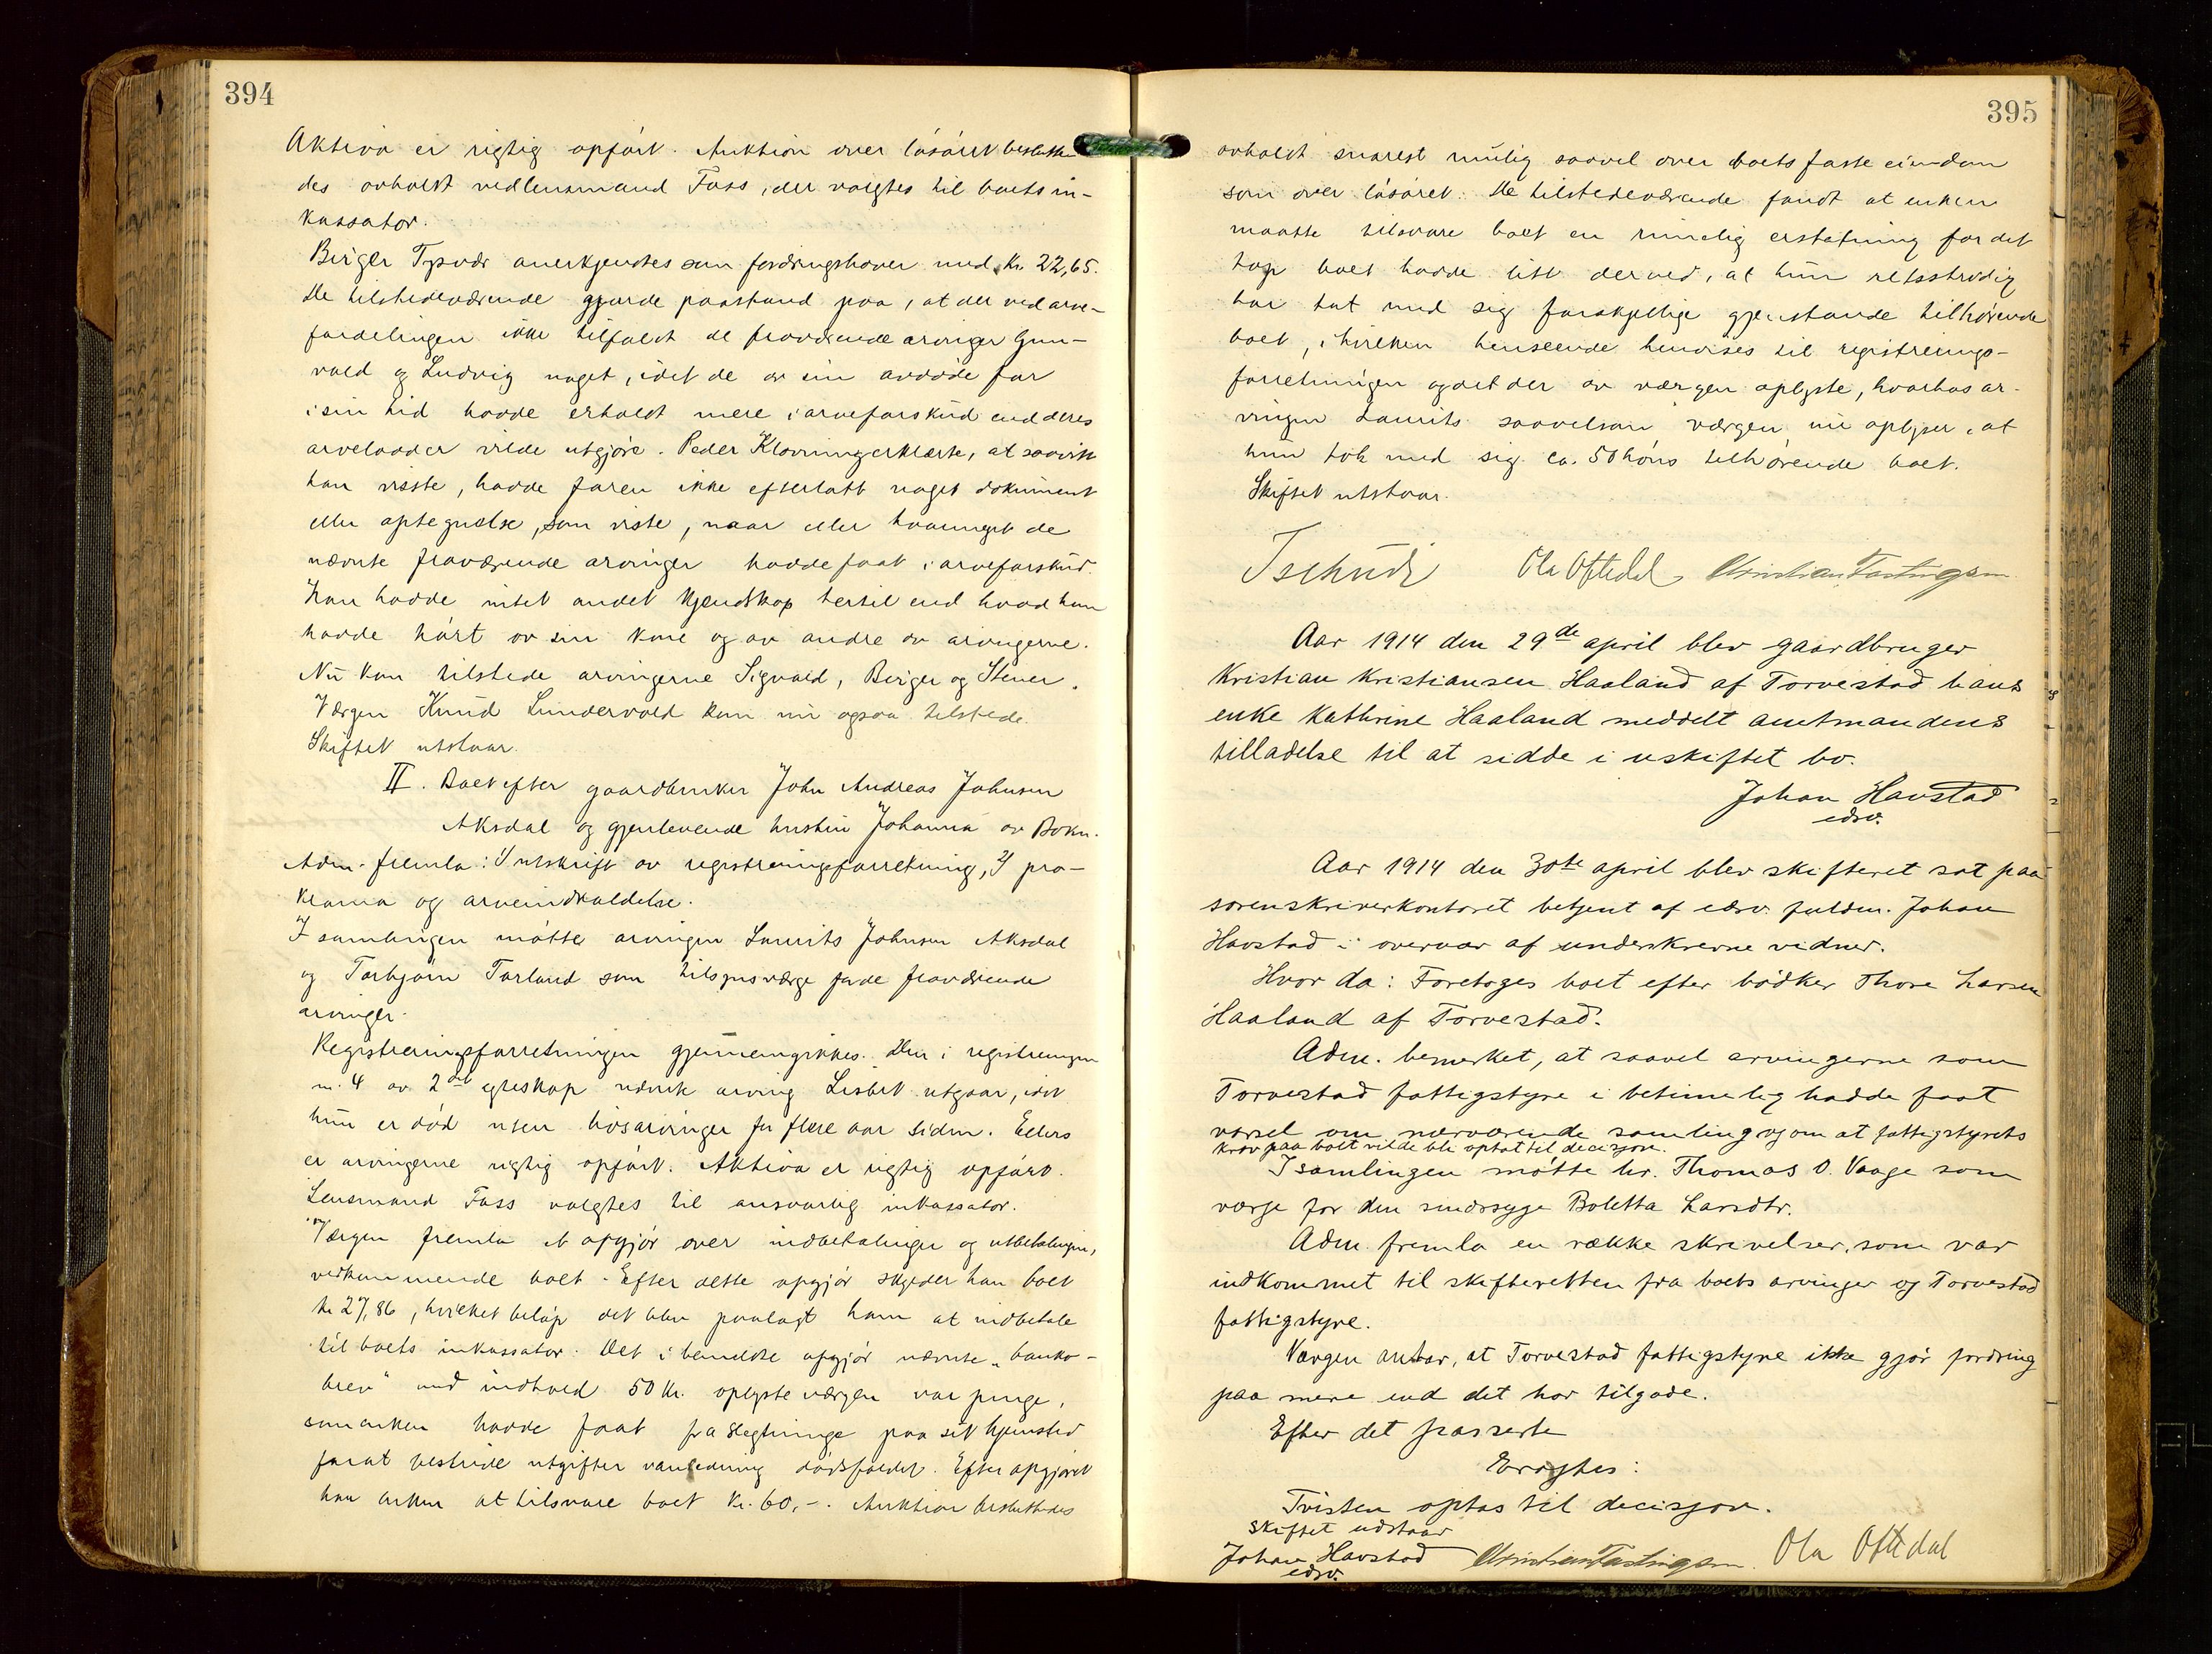 394
Aktiva er rigtig opført. Auktion over løsøret beslutte-
des avholdt ved lensmand Foss, der valgtes til boets in-
kassator.
Birger Tysvær anerkjendtes som fordringshaver med Kr. 22,65.
De tilstedeværende gjorde paastand paa, at der ved arve-
fordelingen ikke tilfaldt de fraværende arvinger Gun-
vald og Ludvig noget, idet de av sin avdøde far
i sin tid hadde erholdt mere i arveforskud end deres
arvelodder vilde utgjøre. Peder Klovning erklærte, at saavidt
han visste, hadde faren ikke efterlatt noget dokument
eller optegnelse, som viste, naar eller hvormeget de
nævnte fraværende arvinger hadde faat i arveforskud.
Han hadde intet andet kjendskap dertil end hvad han
hadde hørt av sin kone og av andre av arvingerne.
Nu kom tilstede arvingerne Sigvald, Birger og Stener.
Værgen Knud Lundervold kom nu ogsaa tilstede.
Skiftet utstaar.
II. Boet efter gaardbruker John Andreas Johnsen
Aksdal og gjenlevende hustru Johanna av Bokn.
Adm. fremla: 1) utskrift av registreringsforretning, 2) pro-
klama og arveindkaldelse.
I samlingen møtte arvingen Laurits Johnsen Aksdal
og Torbjørn Torland som tilsynsværge for de fraværende
arvinger.
Registreringsforretningen gjennemgikkes. Den i registreringen
nr. 4 av 2det egteskap nævnte arving Lisbet utgaar, idet
hun er død uten livsarvinger for flere aar siden. Ellers
er arvingerne rigtig opført. Aktiva er rigtig opført.
Lensmand Foss valgtes til ansvarlig inkassator.
Værgen fremla et opgjør over indbetalinger og utbetalinger,
vedkommende boet. Efter dette opgjør skylder han boet
kr 27,86, hvilket beløp det blev paalagt ham at indbetale
til boets inkassator. Det i bemeldte opgjør nævnte „banko-
brev“ med indhold 50 Kr. oplyste værgen var penge,
som enken hadde faat fra slegtninge paa sit hjemsted
forat bestride utgifter i anledning dødsfaldet. Efter opgjøret
har enken at tilsvare boet Kr. 60,-. Auktion besluttedes
395
avholdt snarest mulig saavel over boets faste eiendom
som over løsøret. De tilstedeværende fandt at enken
maatte tilsvare boet en rimelig erstatning for det
tap boet hadde litt derved, at hun retsstridig
har tat med sig forskjellige gjenstande tilhørende
boet, i hvilken henseende henvises til registrerings-
forretningen og det der av værgen oplyste, hvorhos ar-
vingen Laurits saavelsom værgen nu oplyser, at
hun tok med sig ca. 50 høns tilhørende boet.
Skiftet utstaar.
Tschudi Ola Oftedal Kristian Fastingsen
Aar 1914 den 29de april blev gaardbruger
Kristian Kristiansen Haaland af Torvestad hans
enke Kathrine Haaland meddelt amtmandens
tilladelse til at sidde i uskiftet bo.
Johan Havstad
edsv.
Aar 1914 den 30te april blev skifteret sat paa
sorenskriverkontoret betjent af edsv. fuldm. Johan
Havstad i overvær af underskrevne vidner.
Hvor da: Foretoges boet efter bødker Thore Larsen
Haaland af Torvestad.
Adm. bemerket, at saavel arvingerne som
Torvestad fattigstyre i betimelig hadde faat
varsel om nærværende samling og om at fattigstyrets
krav paa boet vilde bli optat til decisjon.
I samlingen møtte hr. Thomas O. Vaage som
værge for den sindssyge Boletta Larsdtr.
Adm. fremla en række skrivelser, som var
indkommet til skifteretten fra boets arvinger og Torvestad
fattigstyre.
Værgen antar, at Torvestad fattigstyre ikke gjør fordring
paa mere end det har tilgode.
Efter det passerte
Eragtes:
Tvisten optas til decisjon.
Skiftet udstaar
Johan Havstad Kristian Fastingsen Ola Oftedal
edsv.